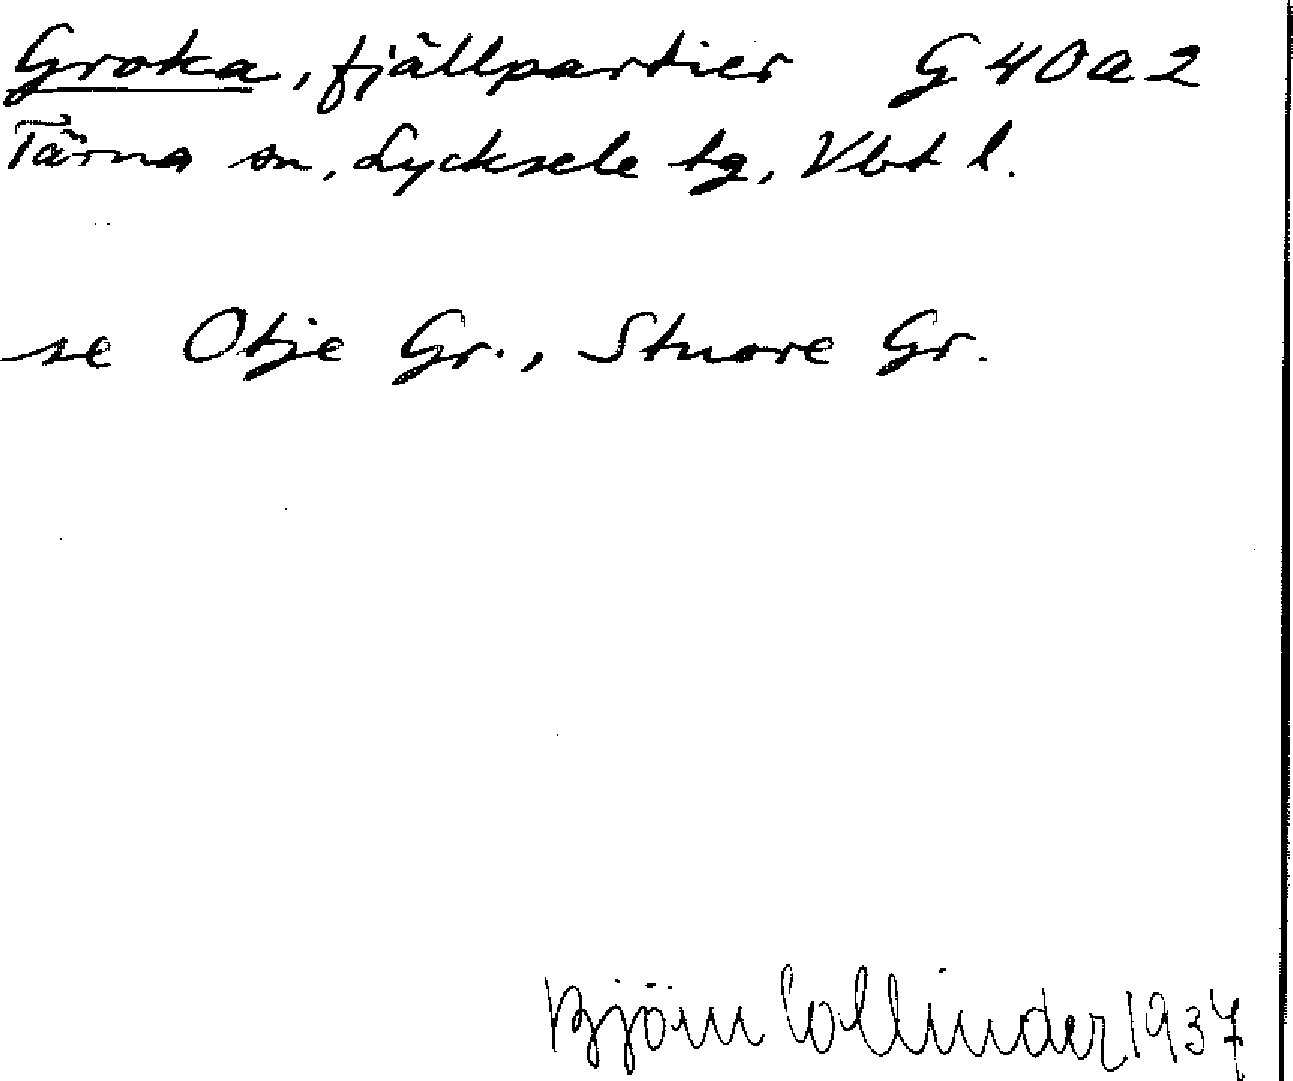 Groka, fjällpartier G 40 a 2
Tärna sn, Lycksele tg, Vbt l.
se Otje Gr., Stuore Gr.
Björn Collinder 1937